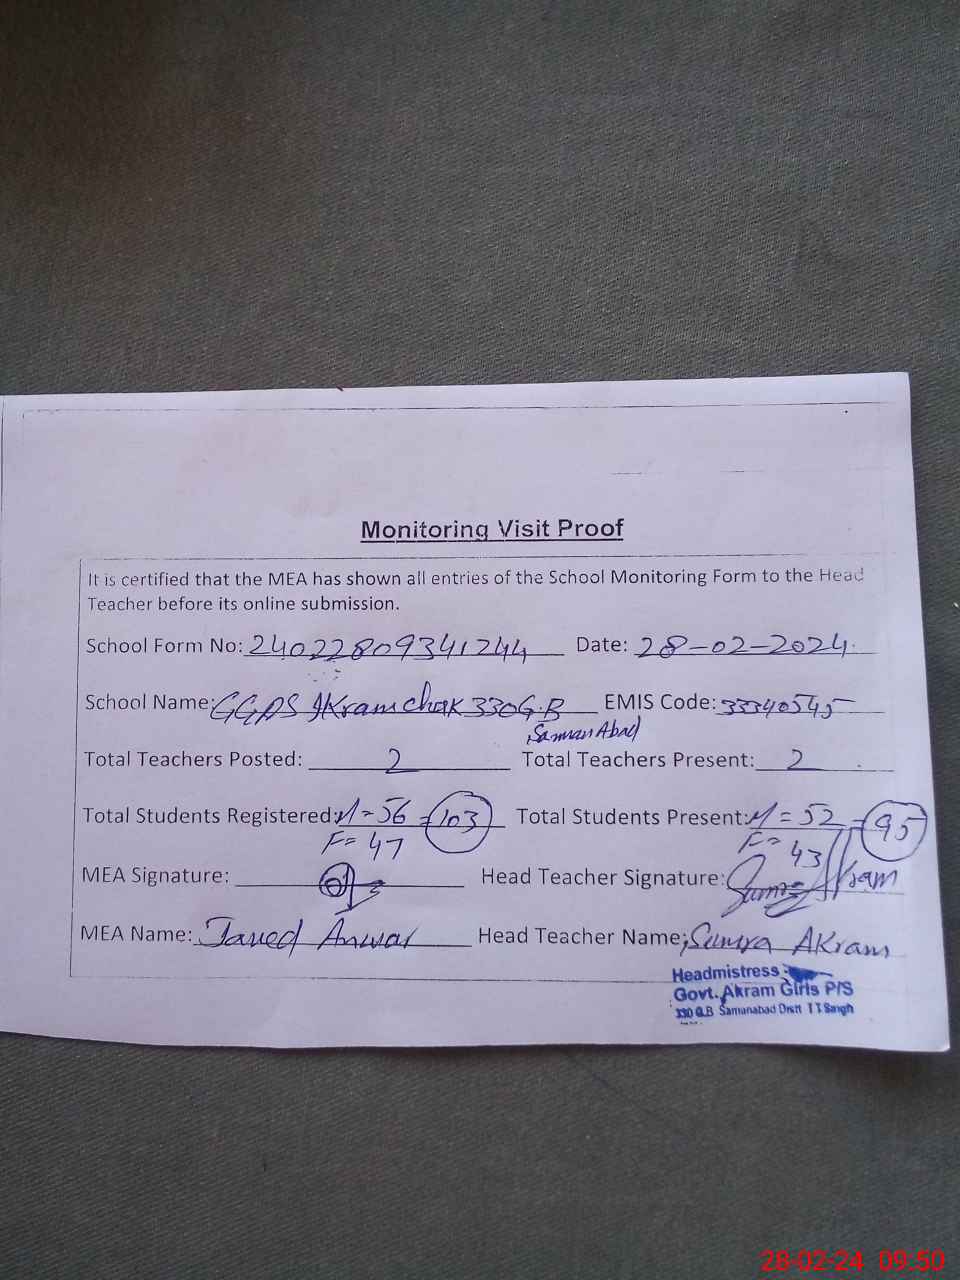 Monitoring Visit Proof
It is certified that the MEA has shown all entries of the School Monitoring Form to the Head
Teacher before its online submission.
School Form No: 24022809341244 Date: 28-02-2024
School Name: GGPS Akram chak 330 G.B EMIS Code: 33340545
Samman Abad
Total Teachers Posted: 2 Total Teachers Present: 2
Total Students Registered: M=56 =103 Total Students Present: M=52 =95
F=47 F=43
MEA Signature: Head Teacher Signature: Akram
MEA Name: Javed Anwar Head Teacher Name: Sumra Akram
Headmistress
Govt. Akram Girls P/S
330 G.B Samanabad Distt T.T Singh
28-02-24 09:50